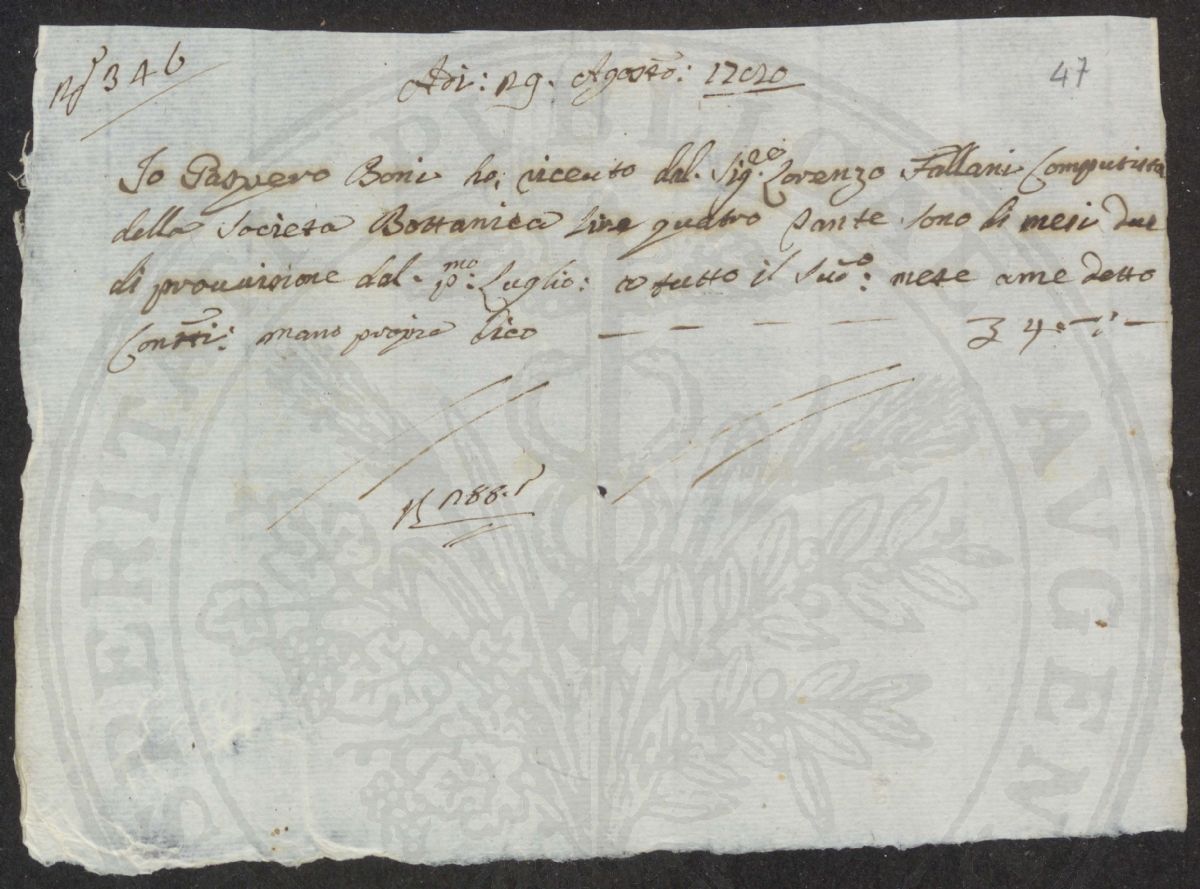 N° 346
Adi: 29. Agosto:
47
Io Gaspero Boni ho; riceuto dal. Sig.re Lorenzo Fallani Computista
della Societa Bottanica Lire quatro tante sono di mesi due
di prouuisione dal. p.mo: Luglio: a tutto il Su.o: mese a me detto
Contti: mano propia dico — — — — 4. — : —
PUBLICAE
SPERITA
AUGEN